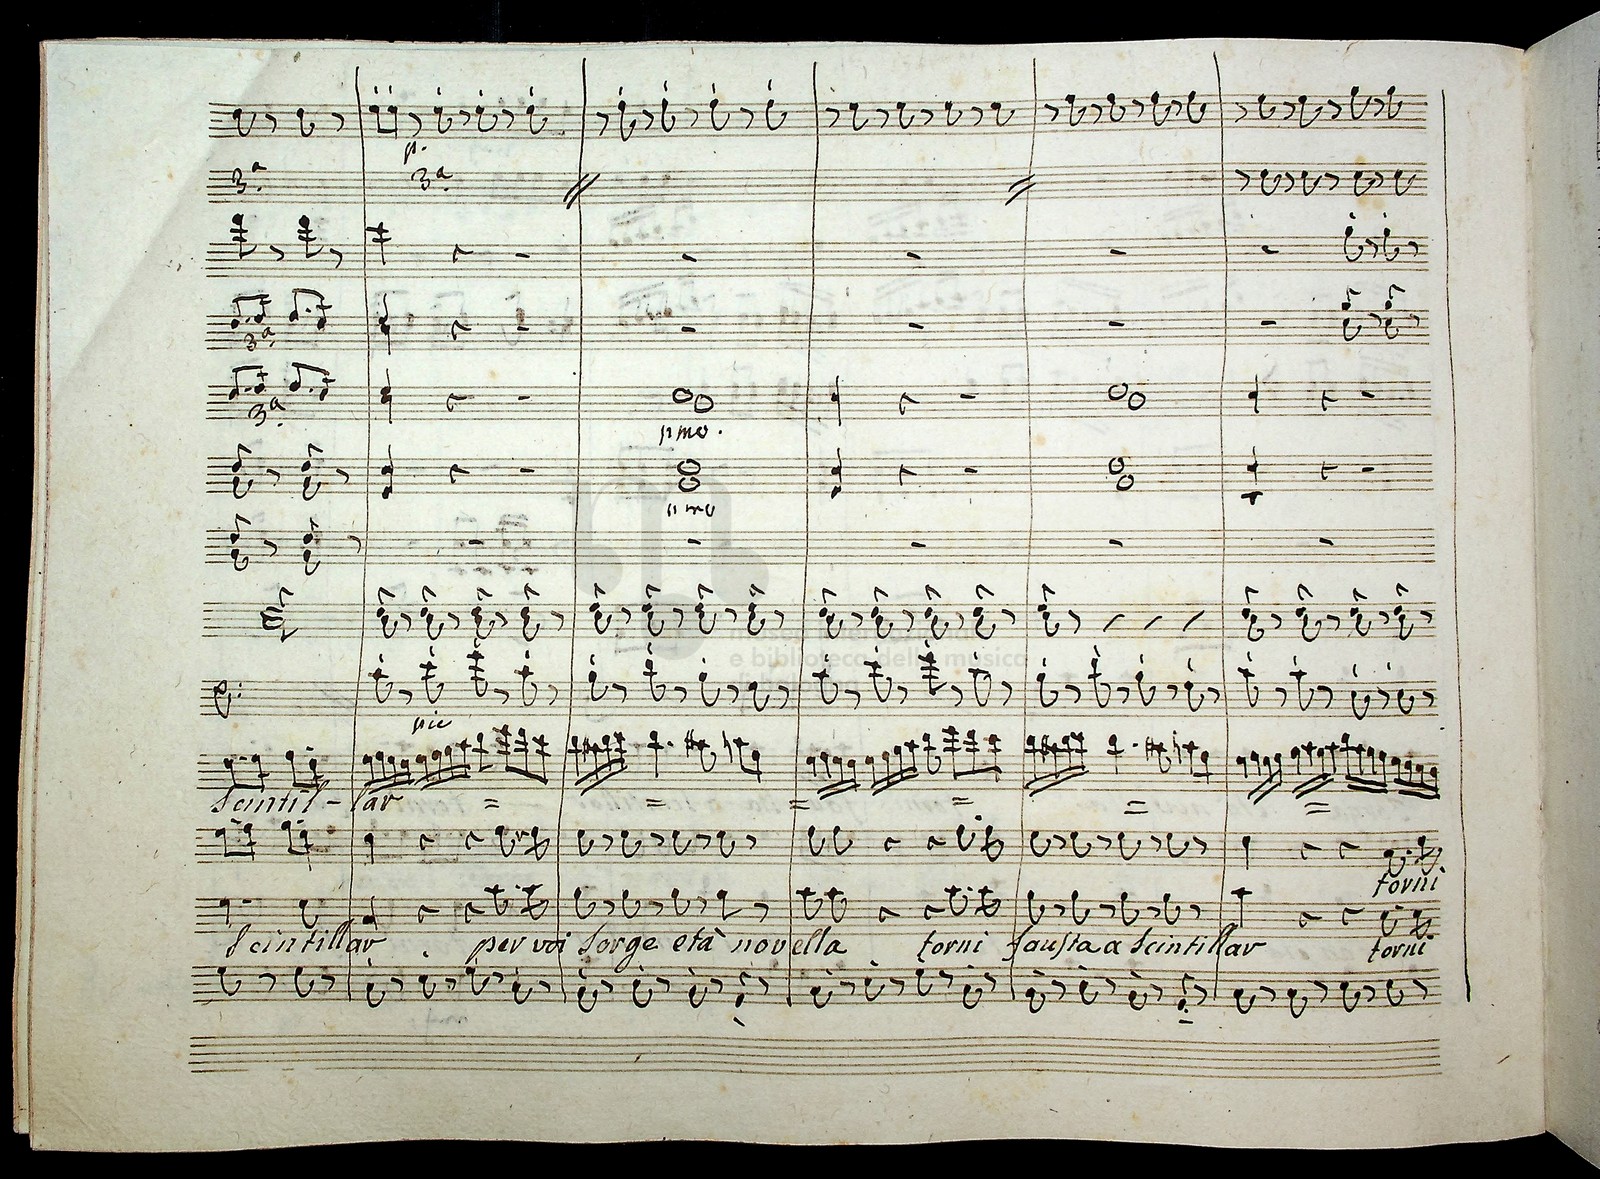 p.
3ª
3ª
3ª
3ª
pmo.
pmo
pie
e biblioteca della musica
Scintil-lar = = = = = =
torni
Scintillar . per voi sorge età novella torni fausta a scintillar torni